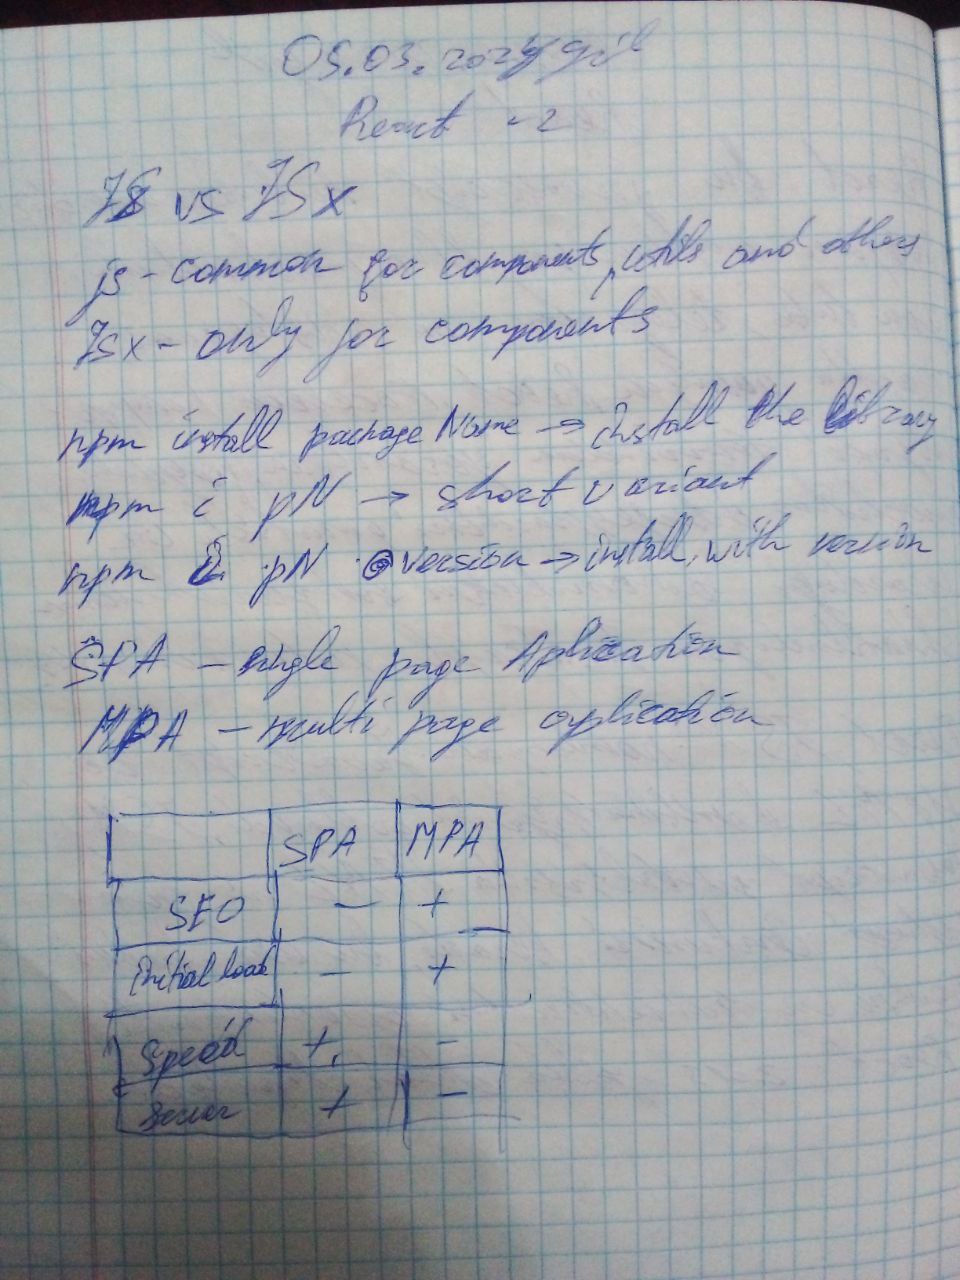 05.03.2024 yil
React - 2
JS vs JSx
js - common for components, utils and others
JSx - only for components
npm install packageName → install the library
npm i pN → short variant
npm i pN @version → install with version
SPA - single page Aplication
MPA - multi page aplication
SPA MPA
SEO - +
initial load - +
Speed + -
Server + -